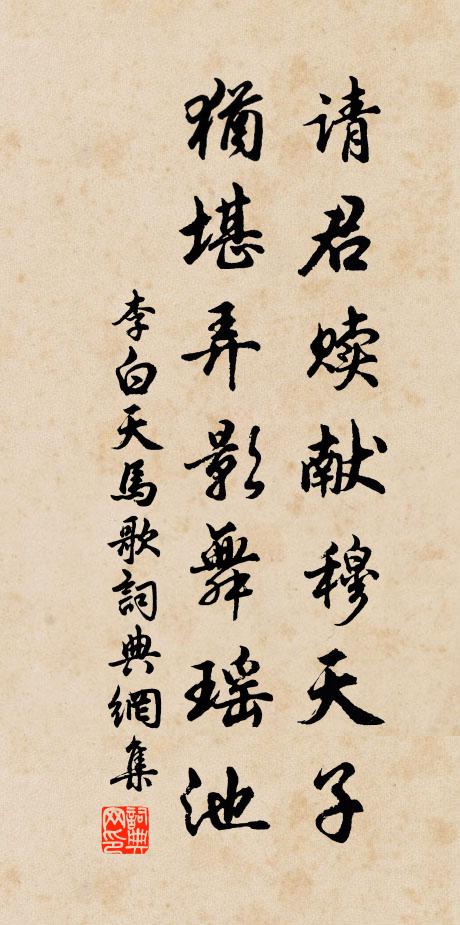 请君赎献穆天子
猶堪弄影舞瑶池
李白天馬歌詞典網集
詞典网印